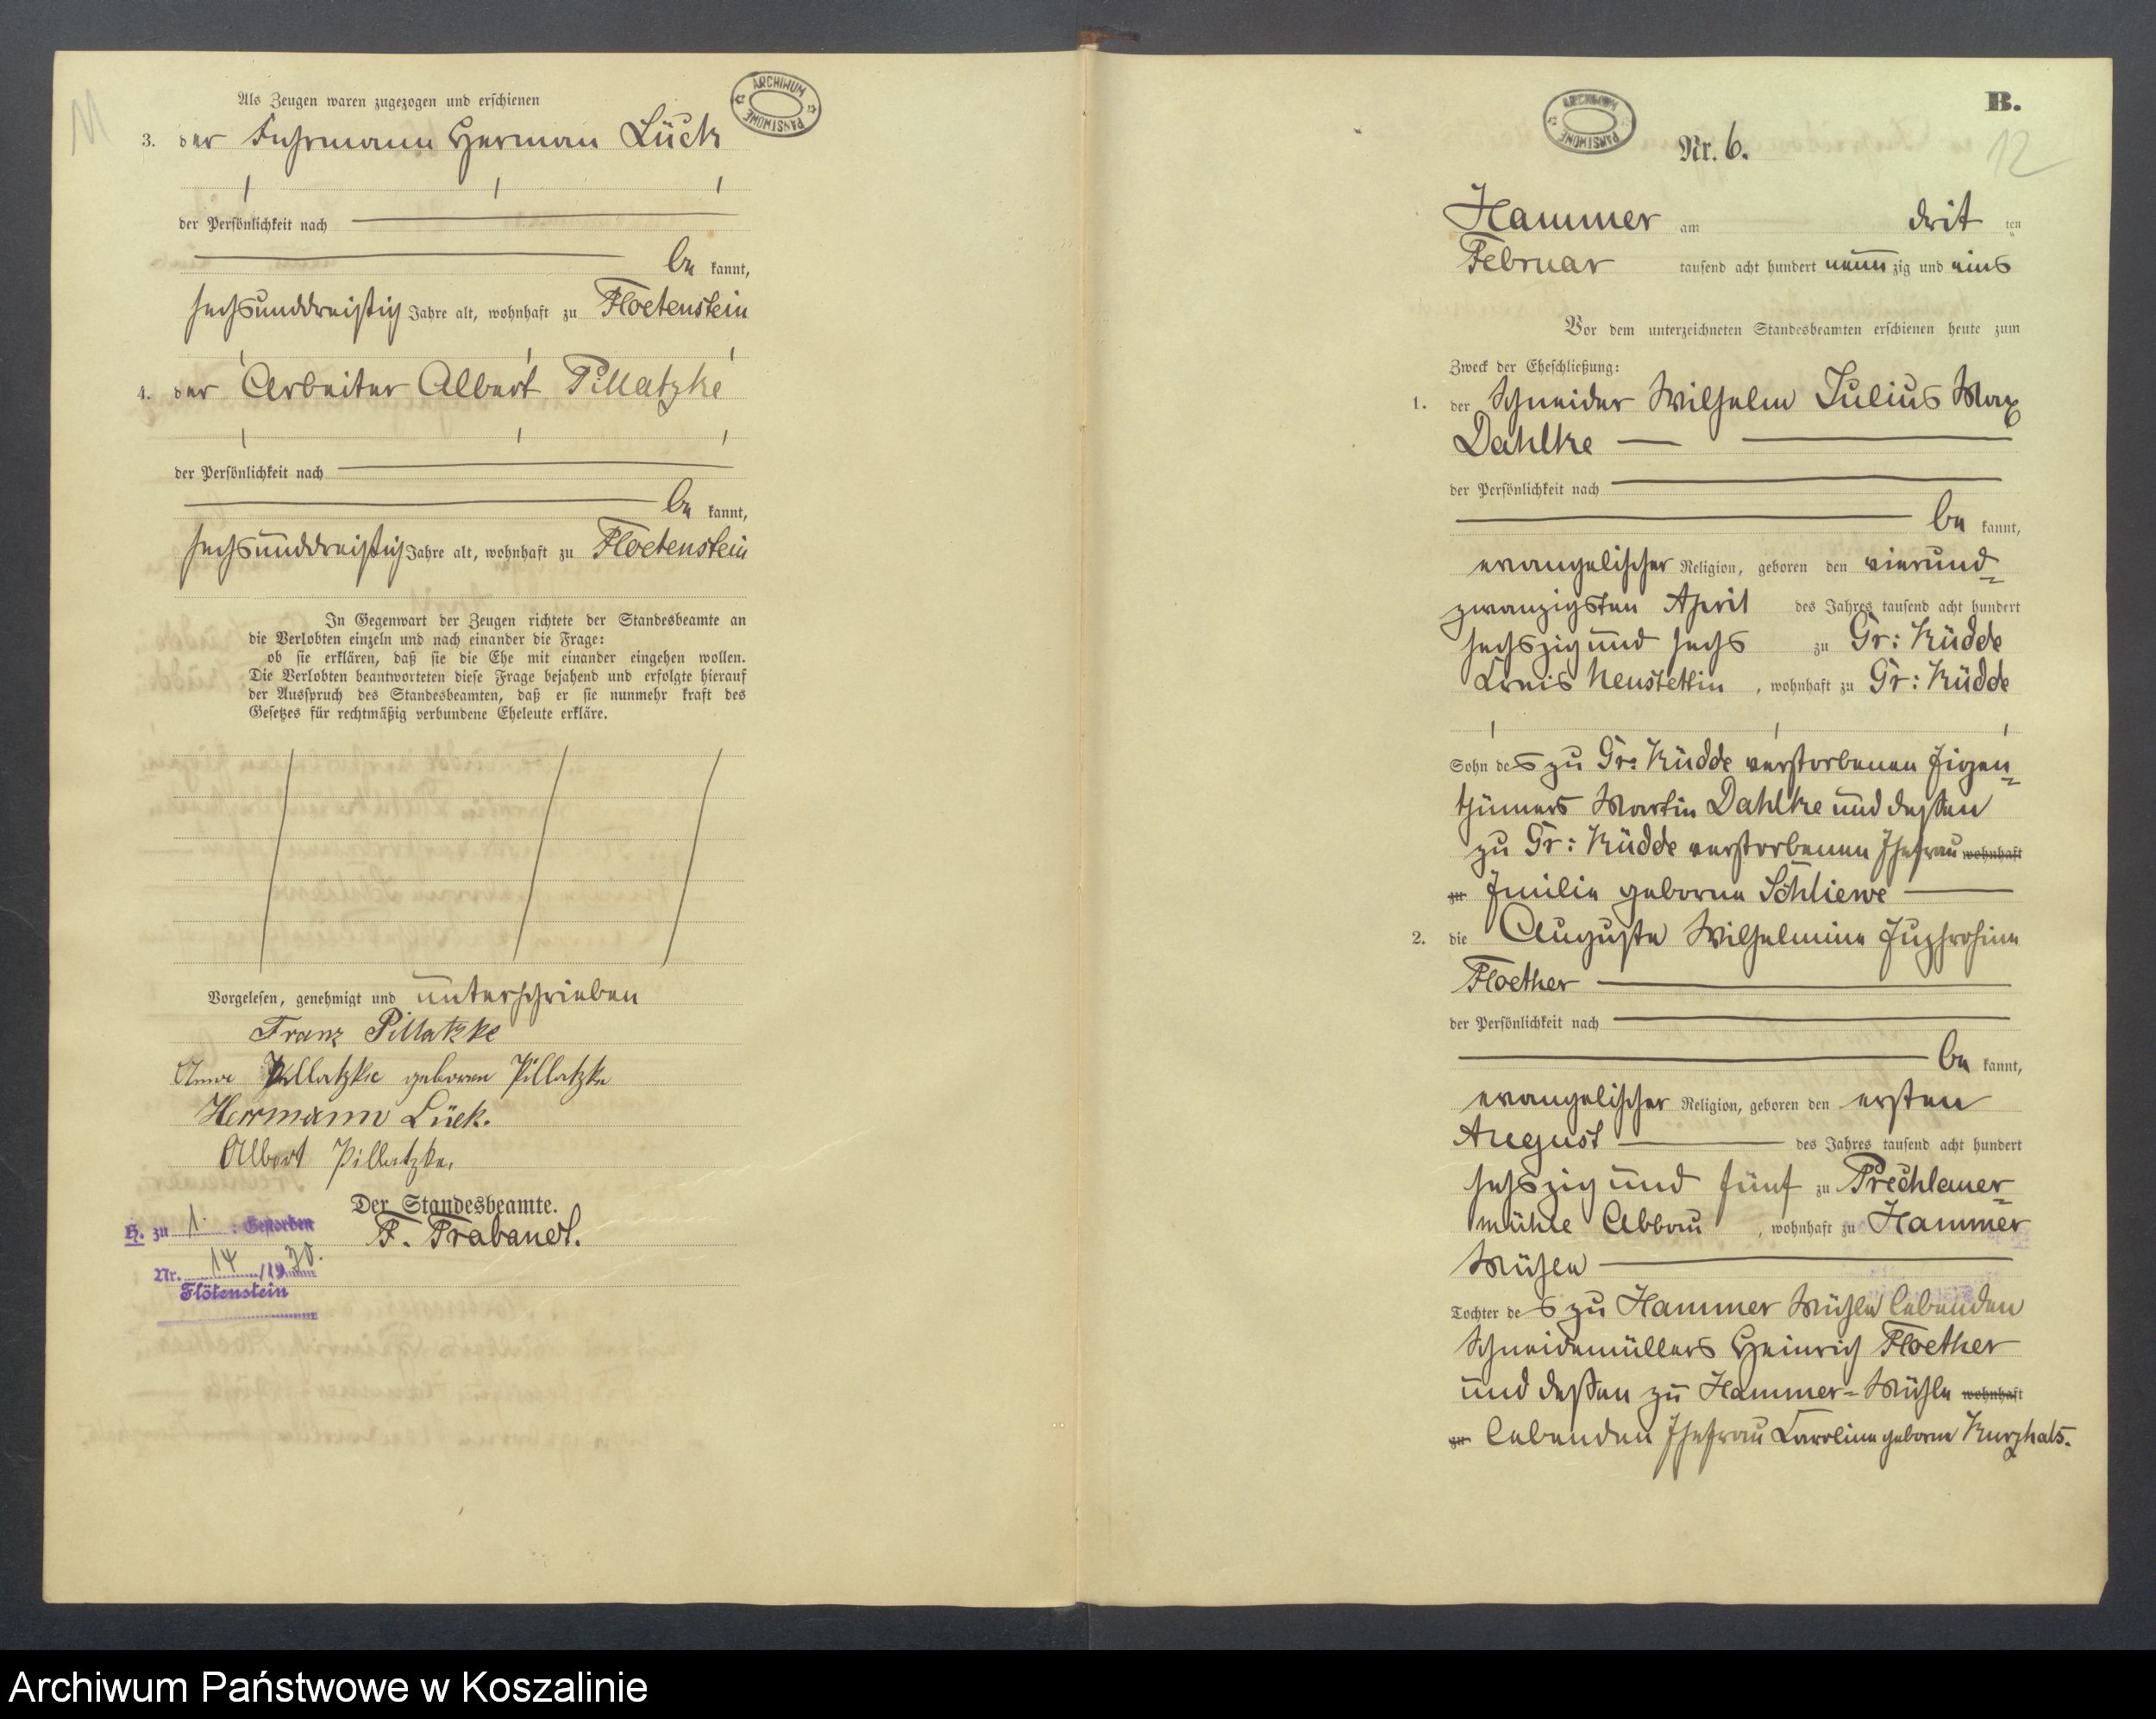 11
Als Zeugen waren zugezogen und erschienen
ARCHIWUM PAŃSTWOWE
3. der Fuhrmann Herman Lück
der Persönlichkeit nach
be kannt,
sechsunddreißig Jahre alt, wohnhaft zu Floetenstein
4. der Arbeiter Albert Pillatzke
der Persönlichkeit nach
be kannt,
sechsunddreißig Jahre alt, wohnhaft zu Floetenstein
In Gegenwart der Zeugen richtete der Standesbeamte an
die Verlobten einzeln und nach einander die Frage:
ob sie erklären, daß sie die Ehe mit einander eingehen wollen.
Die Verlobten beantworteten diese Frage bejahend und erfolgte hierauf
der Ausspruch des Standesbeamten, daß er sie nunmehr kraft des
Gesetzes für rechtmäßig verbundene Eheleute erkläre.
Vorgelesen, genehmigt und unterschrieben
Franz Pillatzke
Anna Pillatzke geboren Pillatzke
Herrmann Lück.
Albert Pillatzke.
Der Standesbeamte.
F. Trabandt.
H. zu 1. : Gestorben
Nr. 14 /19 30.
Flötenstein
ARCHIWUM PAŃSTWOWE
B.
Nr. 6.
12
Hammer am drit ten
Februar tausend acht hundert neun zig und eins
Vor dem unterzeichneten Standesbeamten erschienen heute zum
Zweck der Eheschließung:
1. der Schneider Wilhelm Julius Max
Dahlke
der Persönlichkeit nach
be kannt,
evangelischer Religion, geboren den vierund=
zwanzigsten April des Jahres tausend acht hundert
sechszig und sechs zu Gr: Küdde
Kreis Neustettin , wohnhaft zu Gr: Küdde
Sohn des zu Gr: Küdde verstorbenen Eigen=
thümers Martin Dahlke und dessen
zu Gr: Küdde verstorbenen Ehefrau wohnhaft
zu Emilie geborne Schliewe
2. die Auguste Wilhelmine Euphrosine
Floether
der Persönlichkeit nach
be kannt,
evangelischer Religion, geboren den ersten
August des Jahres tausend acht hundert
sechszig und fünf zu Prechlauer=
mühle Abbau , wohnhaft zu Hammer
Mühle
Tochter des zu Hammer Mühle lebenden
Schneidemüllers Heinrich Floether
und dessen zu Hammer=Mühle wohnhaft
zu lebenden Ehefrau Caroline geborne Kurzhals.
Archiwum Państwowe w Koszalinie